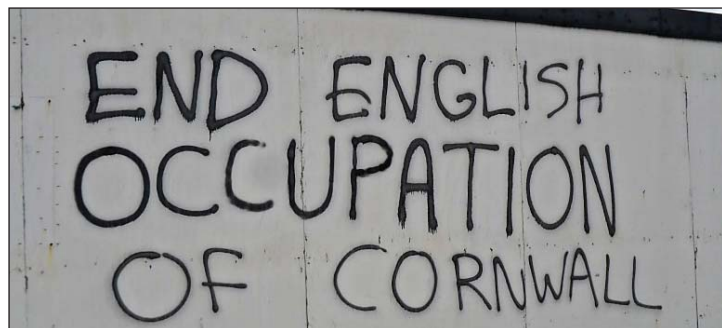 END ENGLISH
OCCUPATION
OF CORNWALL